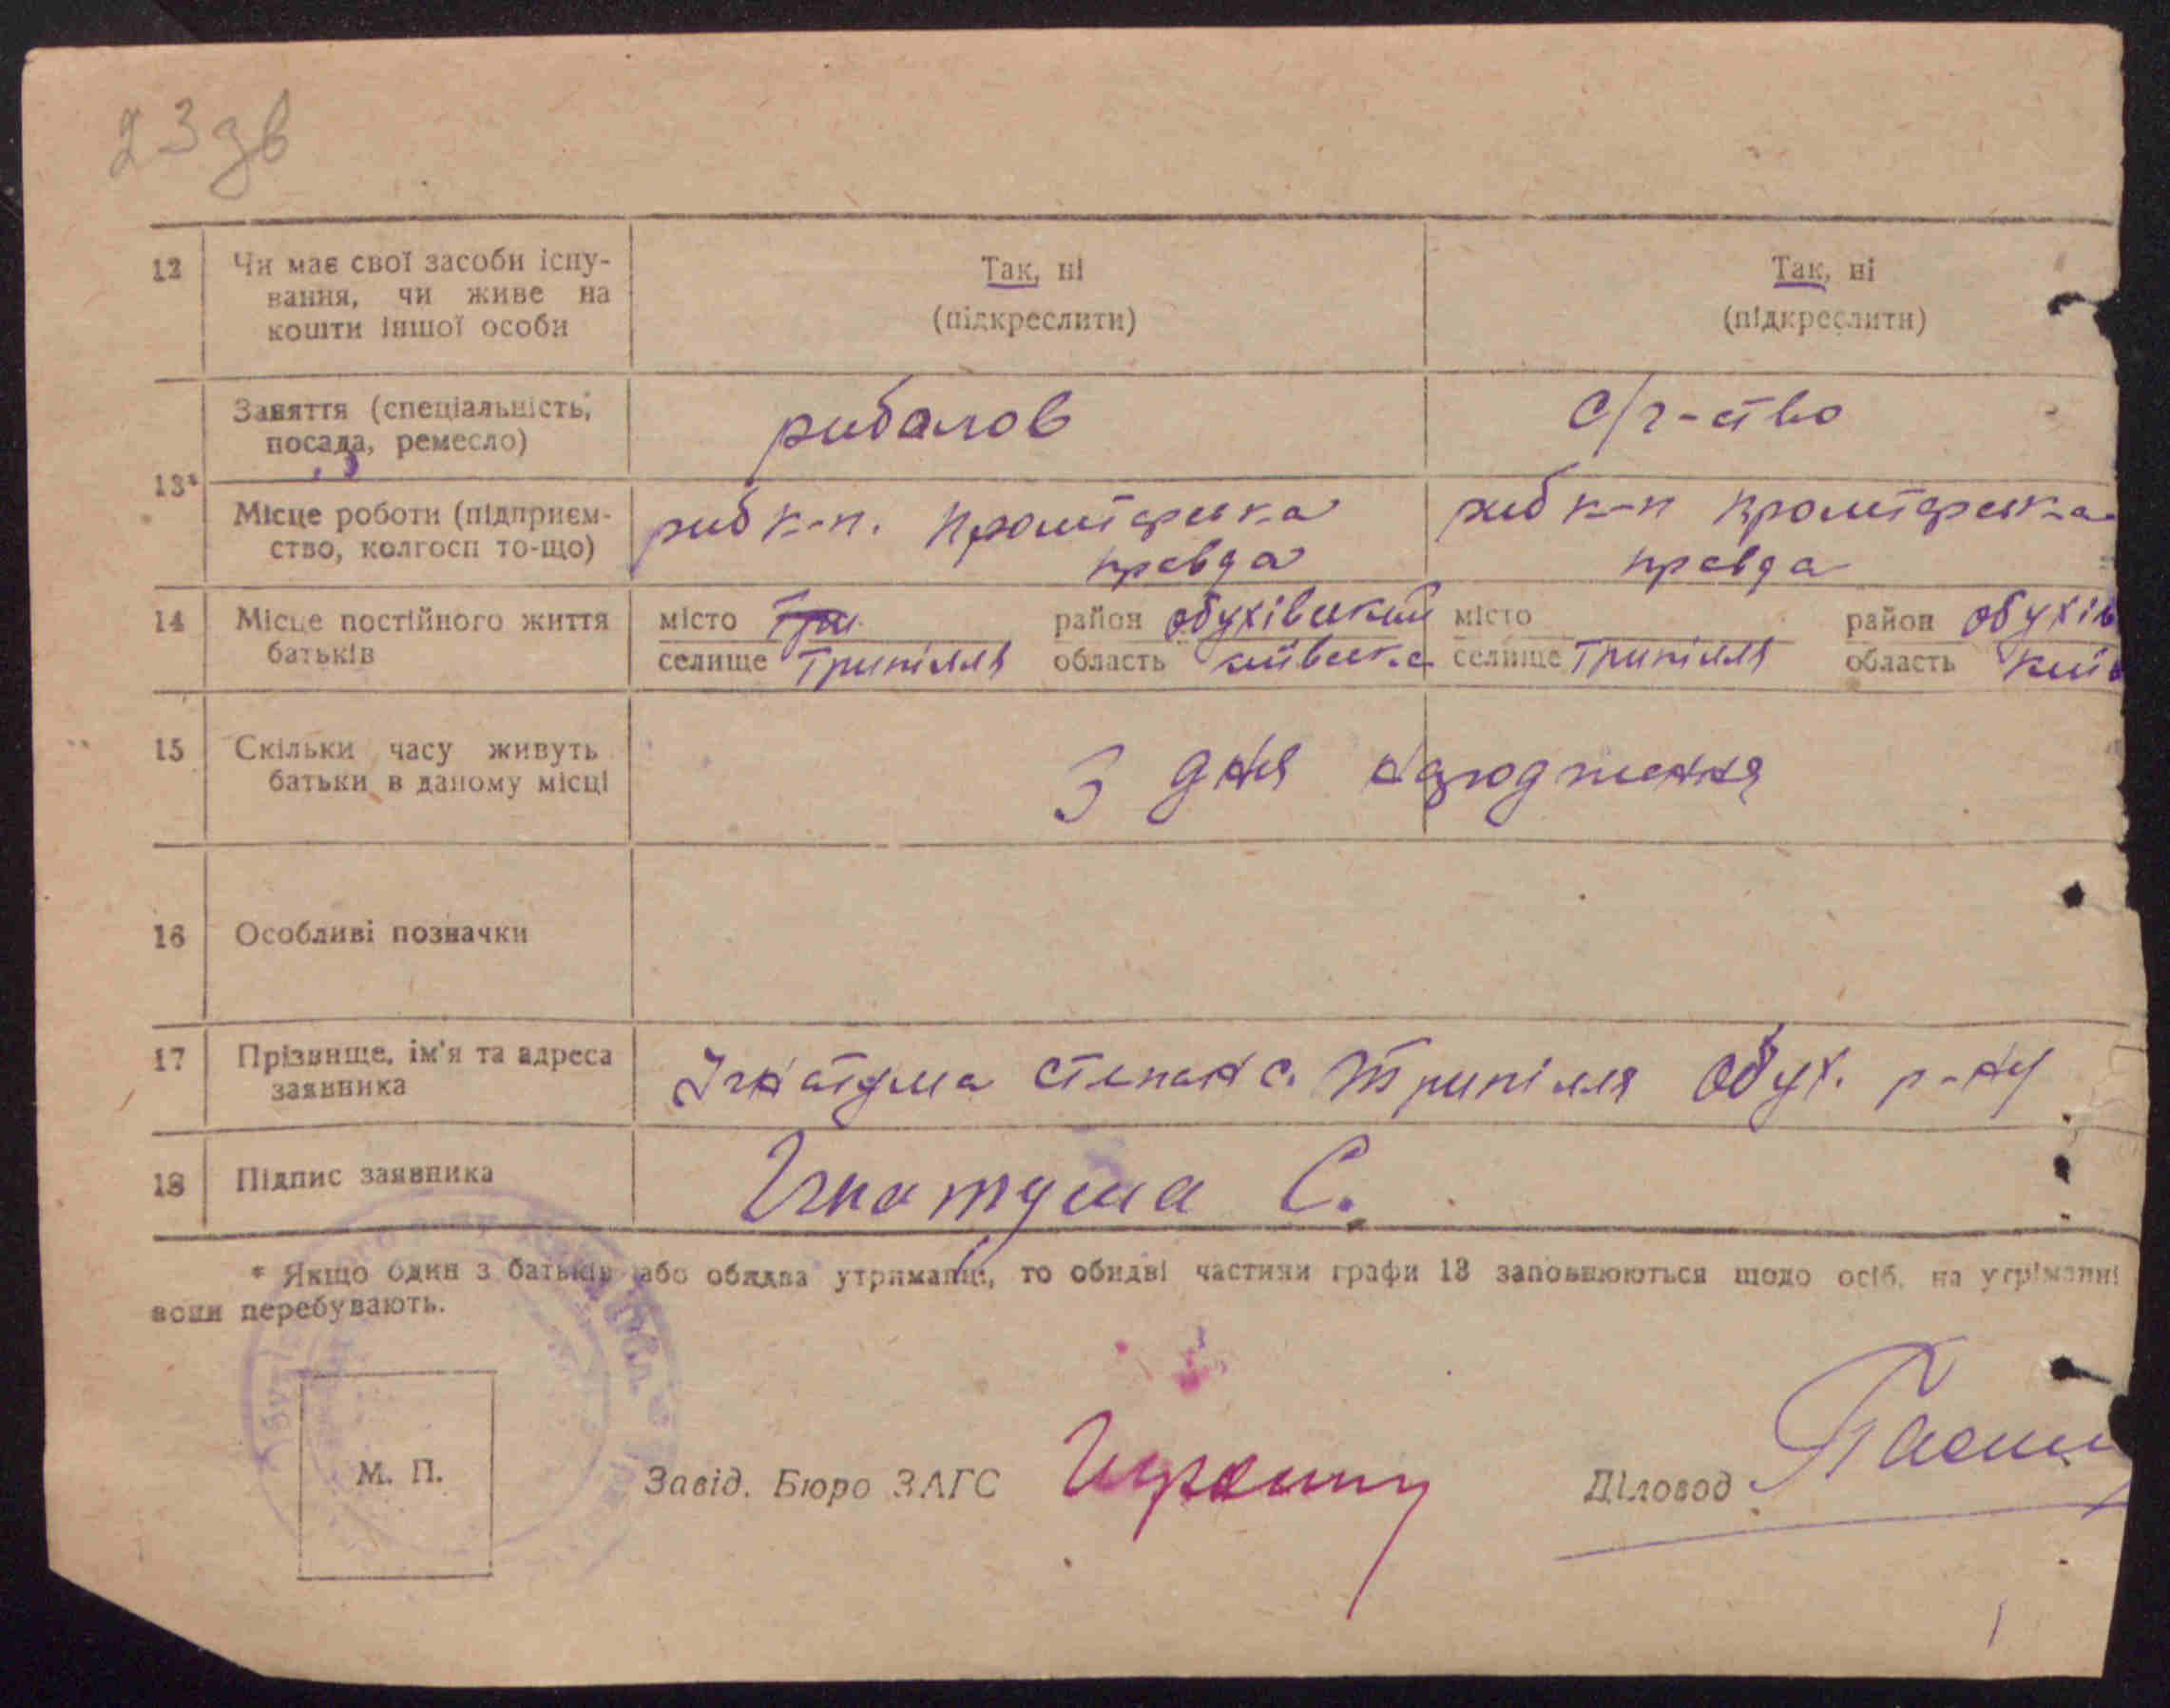 23 зв
12 Чи має свої засоби існу- Так, ні Так, ні
вання, чи живе на
кошти іншої особи (підкреслити) (підкреслити)
Заняття (спеціальність, рибалов с/г-ство
посада, ремесло)
13*
Місце роботи (підприєм- риб к-п. Пролетарська риб к-п Пролетарська
ство, колгосп то-що) правда правда
14 Місце постійного життя місто Три район Обухівський місто район Обухів
батьків селище Трипілля область Київська селище Трипілля область Київ
15 Скільки часу живуть
батьки в даному місці З дня народження
16 Особливі позначки
17 Прізвище, ім'я та адреса Ігнатуша Степан с. Трипілля Обух. р-ну
заявника
18 Підпис заявника Игнатуша С.
* Якщо один з батьків або обидва утриманці, то обидві частини графи 13 заповнюються щодо осіб, на утріманні
вони перебувають.
М. П. Завід. Бюро ЗАГС Діловод